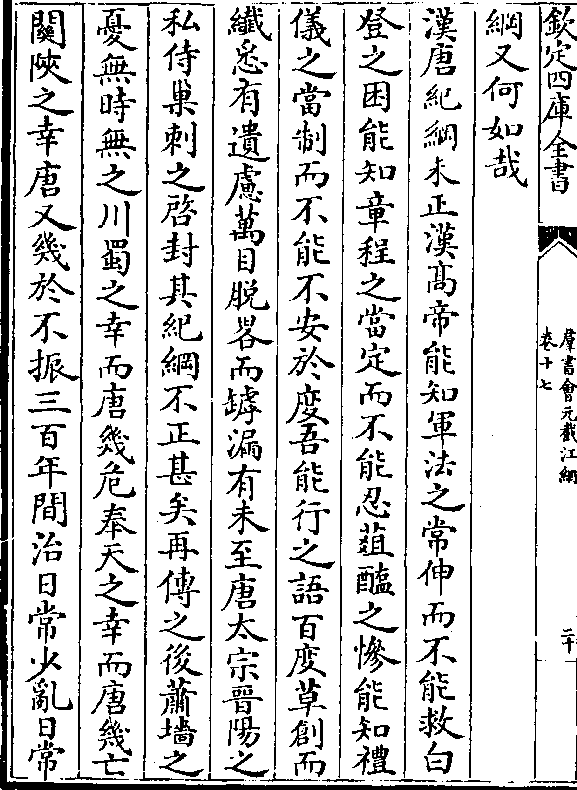 欽定四庫全書
羣書會元截江網
卷十七
二十
綱又何如哉
漢唐紀綱未正漢髙帝能知軍法之常伸而不能救白
登之困能知章程之當定而不能忍葅醢之慘能知禮
儀之當制而不能不安於度吾能行之語百度草創而
纎悉有遺慮萬目脱畧而罅漏有未至唐太宗晉陽之
私侍巢刺之啓封其紀綱不正甚矣再傳之後蕭墻之
憂無時無之川蜀之幸而唐幾危奉天之幸而唐幾亡
關陜之幸唐又幾於不振三百年間治日常少亂日常